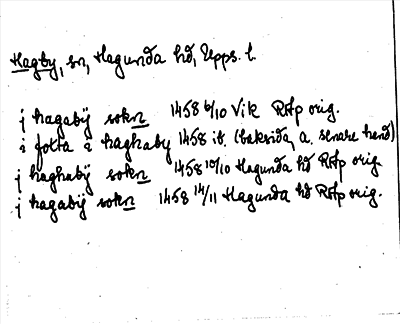 Hagby, sn, Hagunda hd, Upps. l.
j hagabÿ sokn 1458 6/10 Vik RAp orig.
i folta i haghaby 1458 ib. (baksida, a. senare hand)
j haghabÿ sokn 1458 10/10 Hagunda hd RAp orig.
j hagabÿ sokn 1458 14/11 Hagunda hd RAp orig.